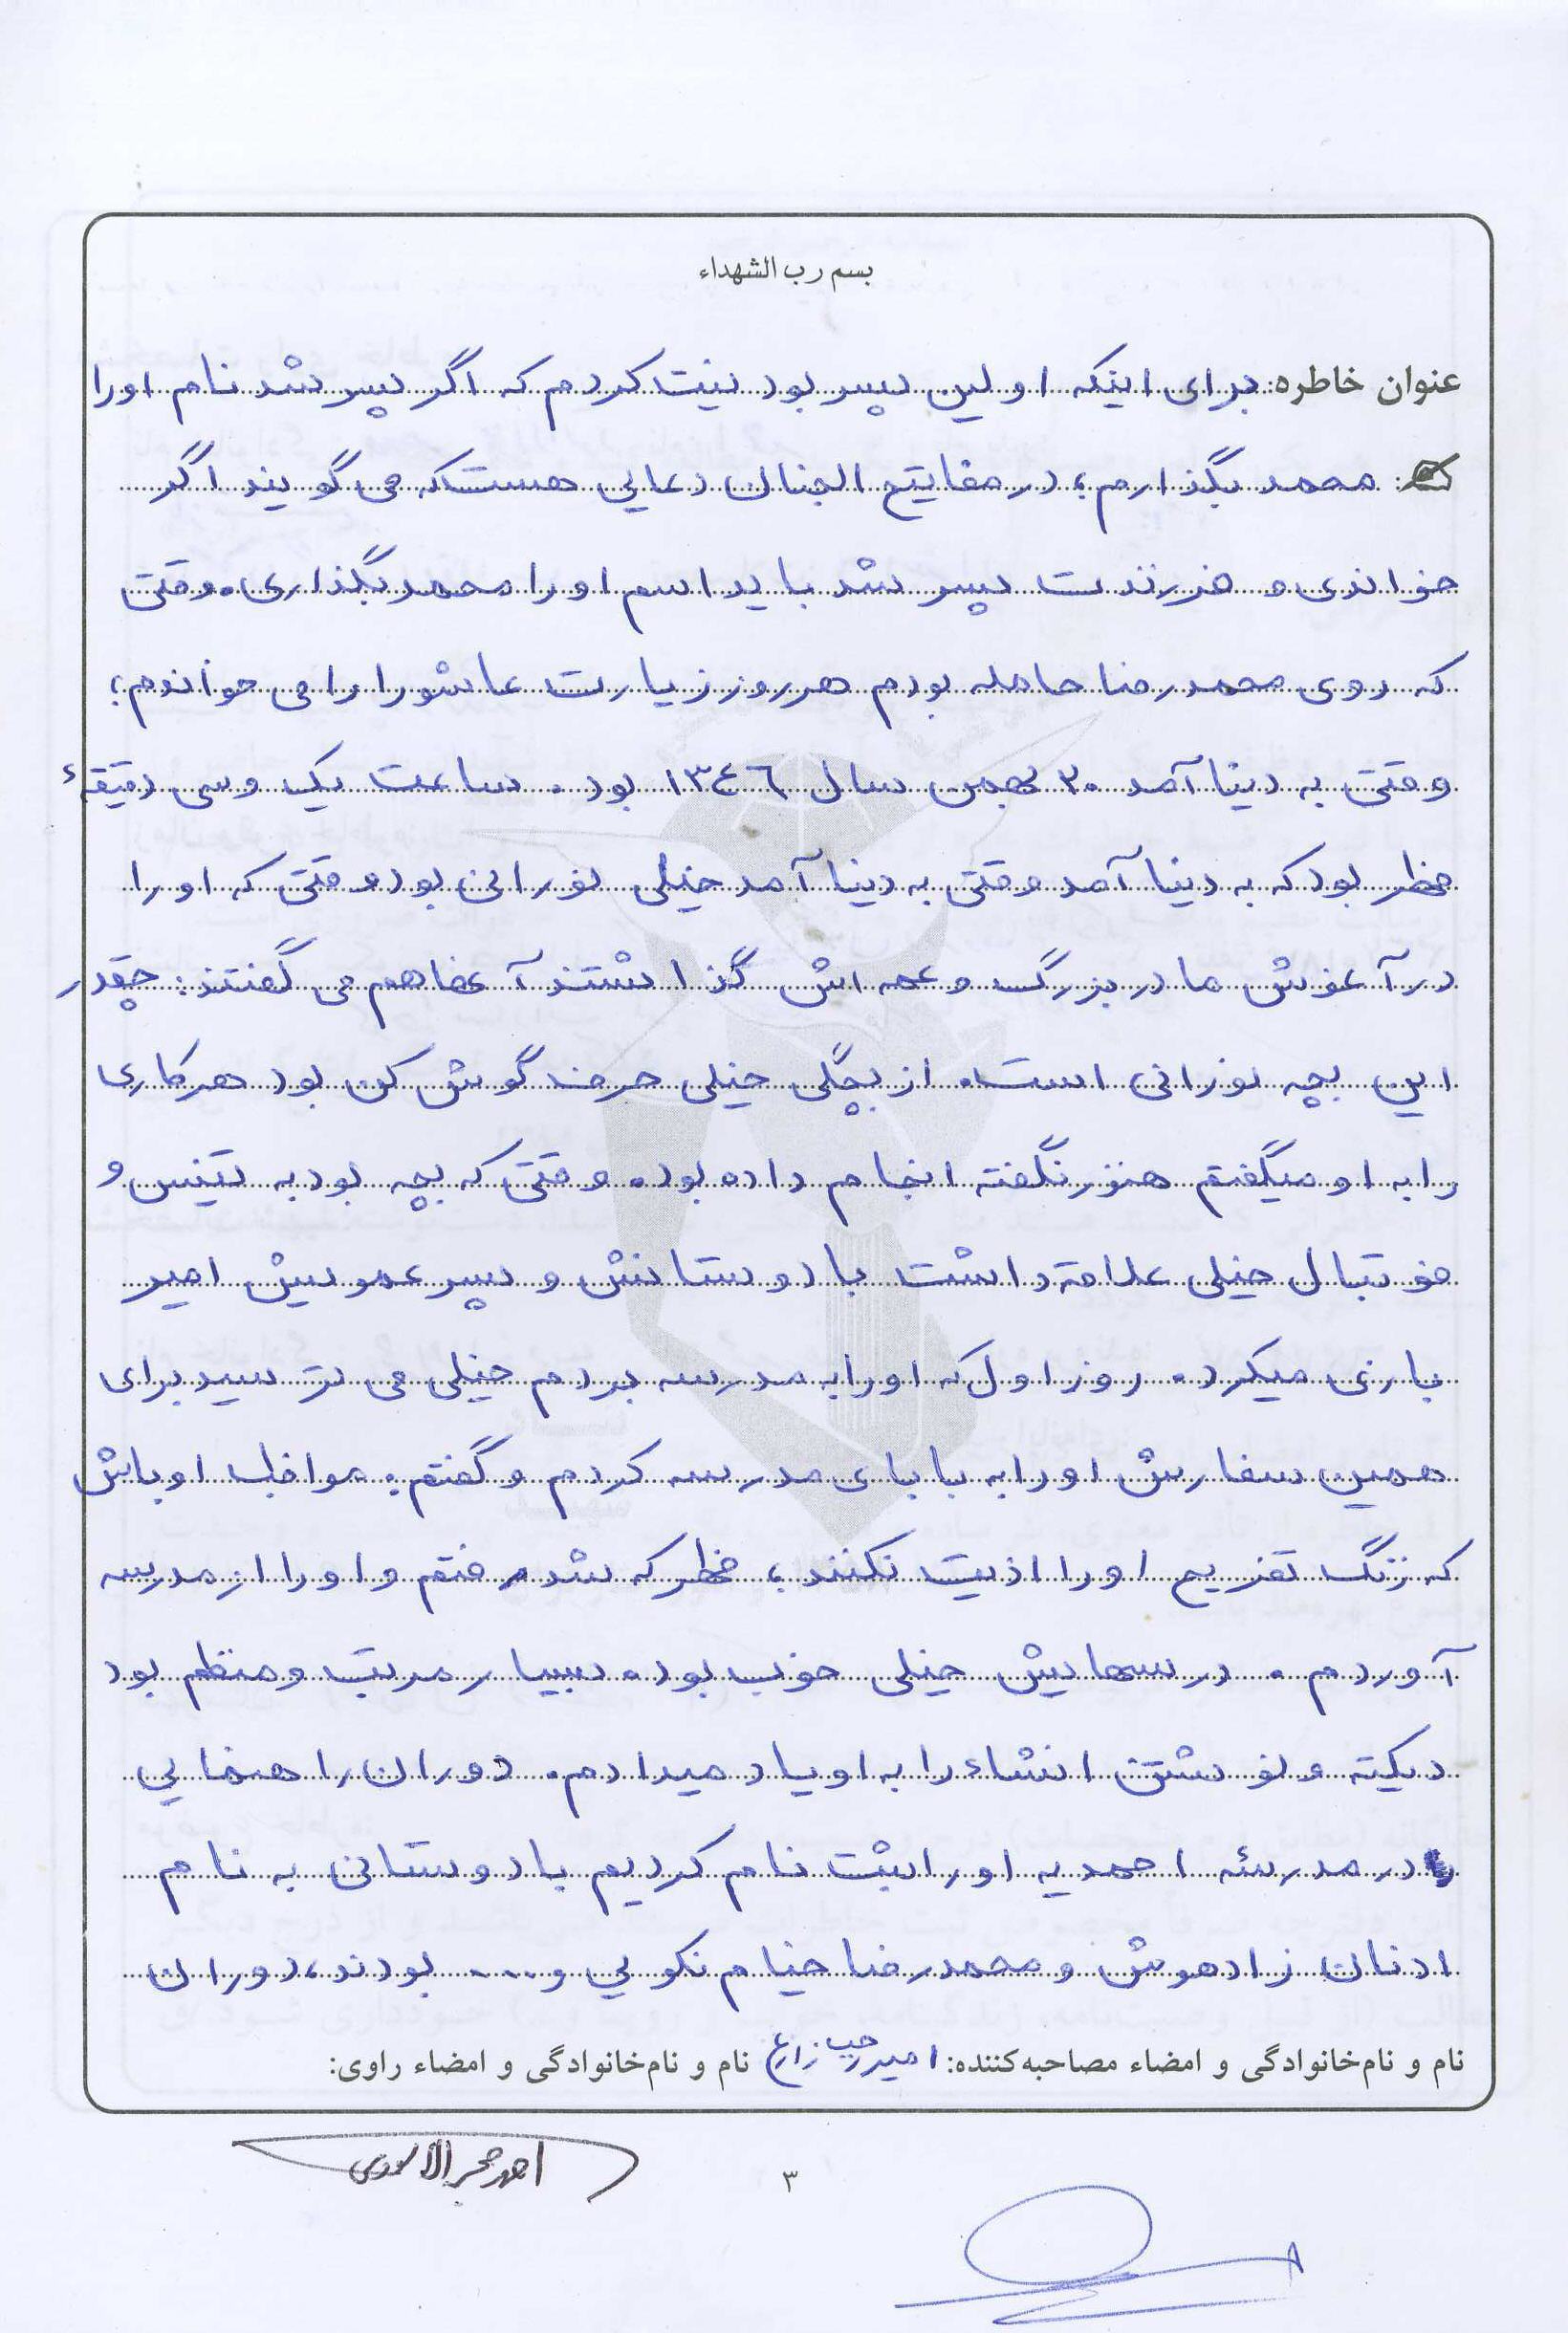 بسم رب الشهداء
عنوان خاطره: برای اینکه اولین پسر بود نیت کردم که اگر پسر شد نام او را
محمد بگذارم؛ در مفاتیح الجنان دعایی هست که می گویند اگر
خواندی و فرزندت پسر شد باید اسم او را محمد بگذاری. وقتی
که روی محمدرضا حامله بودم هر روز زیارت عاشورا را می خواندم؛
وقتی به دنیا آمد ۳۰ بهمن سال ۱۳۴۶ بود. ساعت یک و سی دقیقهٔ
ظهر بود که به دنیا آمد وقتی به دنیا آمد خیلی نورانی بود وقتی که او را
در آغوش مادربزرگ و عمه اش گذاشتند آنها هم می گفتند: چقدر
این بچه نورانی است. از بچگی خیلی حرف گوش کن بود هر کاری
را به او میگفتم هنوز نگفته انجام داده بود. وقتی که بچه بود به تنیس و
فوتبال خیلی علاقه داشت با دوستانش و پسر عمویش امیر
بازی میکرد. روز اول که او را به مدرسه بردم خیلی می ترسید برای
همین سفارش او را به بابای مدرسه کردم و گفتم: مواظب او باش
که زنگ تفریح او را اذیت نکنند؛ ظهر که شد رفتم و او را از مدرسه
آوردم. درسهایش خیلی خوب بود. بسیار مرتب و منظم بود
دیکته و نوشتن انشاء را به او یاد میدادم. دوران راهنمایی
در مدرسهٔ احمدیه او را ثبت نام کردیم با دوستانی به نام
ادنان زادهوش و محمدرضا خیام نکویی و .... بودند، دوران
نام و نام‌خانوادگی و امضاء مصاحبه‌کننده: امیر رجب زارع نام و نام‌خانوادگی و امضاء راوی:
۳